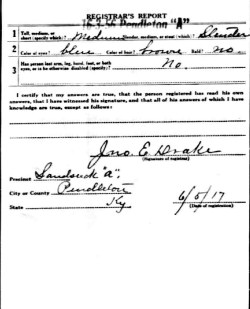 REGISTRAR'S REPORT
16-3-56 Pendleton "A"
1 Tall, medium, or short (specify which)? Medium Slender, medium, or stout (which)? Slender
2 Color of eyes? blue Color of hair? brown Bald? no.
3 Has person lost arm, leg, hand, foot, or both
eyes, or is he otherwise disabled (specify)? No.
I certify that my answers are true, that the person registered has read his own
answers, that I have witnessed his signature, and that all of his answers of which I have
knowledge are true, except as follows:
Jno. E. Drake
(Signature of registrar)
Precinct Sandsuck "A".
City or County Pendleton
State Ky
6/5/17
(Date of registration)